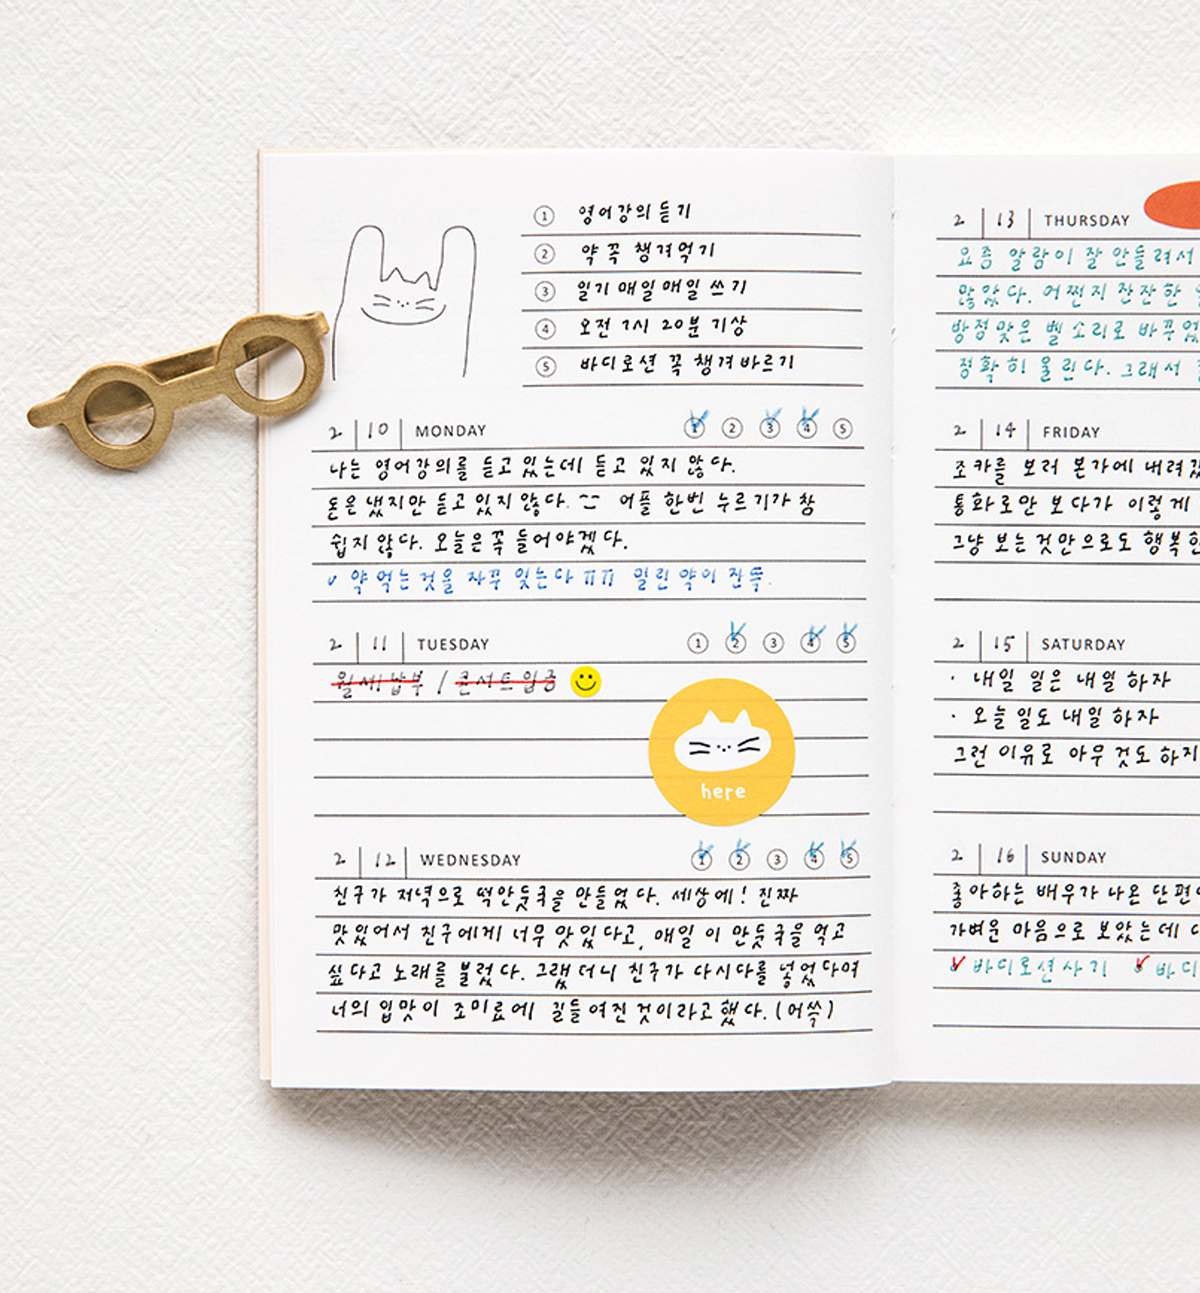 ① 영어강의 듣기
② 약 꼭 챙겨먹기
③ 일기 매일매일 쓰기
④ 오전 7시 20분 기상
⑤ 바디로션 꼭 챙겨바르기
2 | 10 | MONDAY ① ② ③ ④ ⑤
나는 영어강의를 듣고 있는데 듣고 있지 않다.
돈은 냈지만 듣고 있지 않다. ^^ 어플 한번 누르기가 참
쉽지 않다. 오늘은 꼭 들어야겠다.
✓ 약 먹는 것을 자꾸 잊는다 ㅠㅠ 밀린 약이 잔뜩.
2 | 11 | TUESDAY ① ② ③ ④ ⑤
월세 납부 / 콘서트 입금
here
2 | 12 | WEDNESDAY ① ② ③ ④ ⑤
친구가 저녁으로 떡만둣국을 만들었다. 세상에! 진짜
맛있어서 친구에게 너무 맛있다고, 매일 이 만둣국을 먹고
싶다고 노래를 불렀다. 그랬더니 친구가 다시다를 넣었다며
너의 입맛이 조미료에 길들여진 것이라고 했다. (머쓱)
2 | 13 | THURSDAY
요즘 알람이 잘 안들려서
많았다. 어쩐지 잔잔한
방정맞은 벨소리로 바꾸었
정확히 울린다. 그래서
2 | 14 | FRIDAY
조카를 보러 본가에 내려갔
통화로만 보다가 이렇게
그냥 보는 것만으로도 행복한
2 | 15 | SATURDAY
· 내일 일은 내일 하자
· 오늘 일도 내일 하자
그런 이유로 아무 것도 하지
2 | 16 | SUNDAY
좋아하는 배우가 나온 단편
가벼운 마음으로 보았는데
바디로션사기 바디